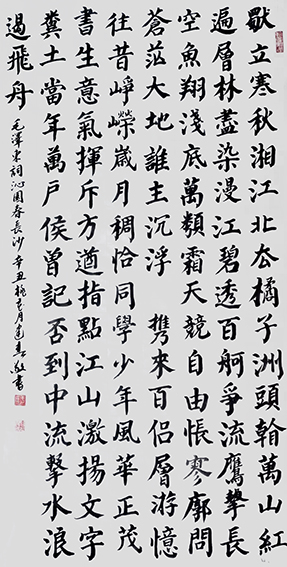 獨立寒秋湘江北去橘子洲頭看萬山紅
遍層林盡染漫江碧透百舸爭流鷹擊長
空魚翔淺底萬類霜天競自由悵寥廓問
蒼茫大地誰主沉浮 携來百侶曾游憶
往昔崢嶸歲月稠恰同學少年風華正茂
書生意氣揮斥方遒指點江山激揚文字
糞土當年萬戶侯曾記否到中流擊水浪
遏飛舟
毛澤東詞沁園春長沙 辛丑 月 書